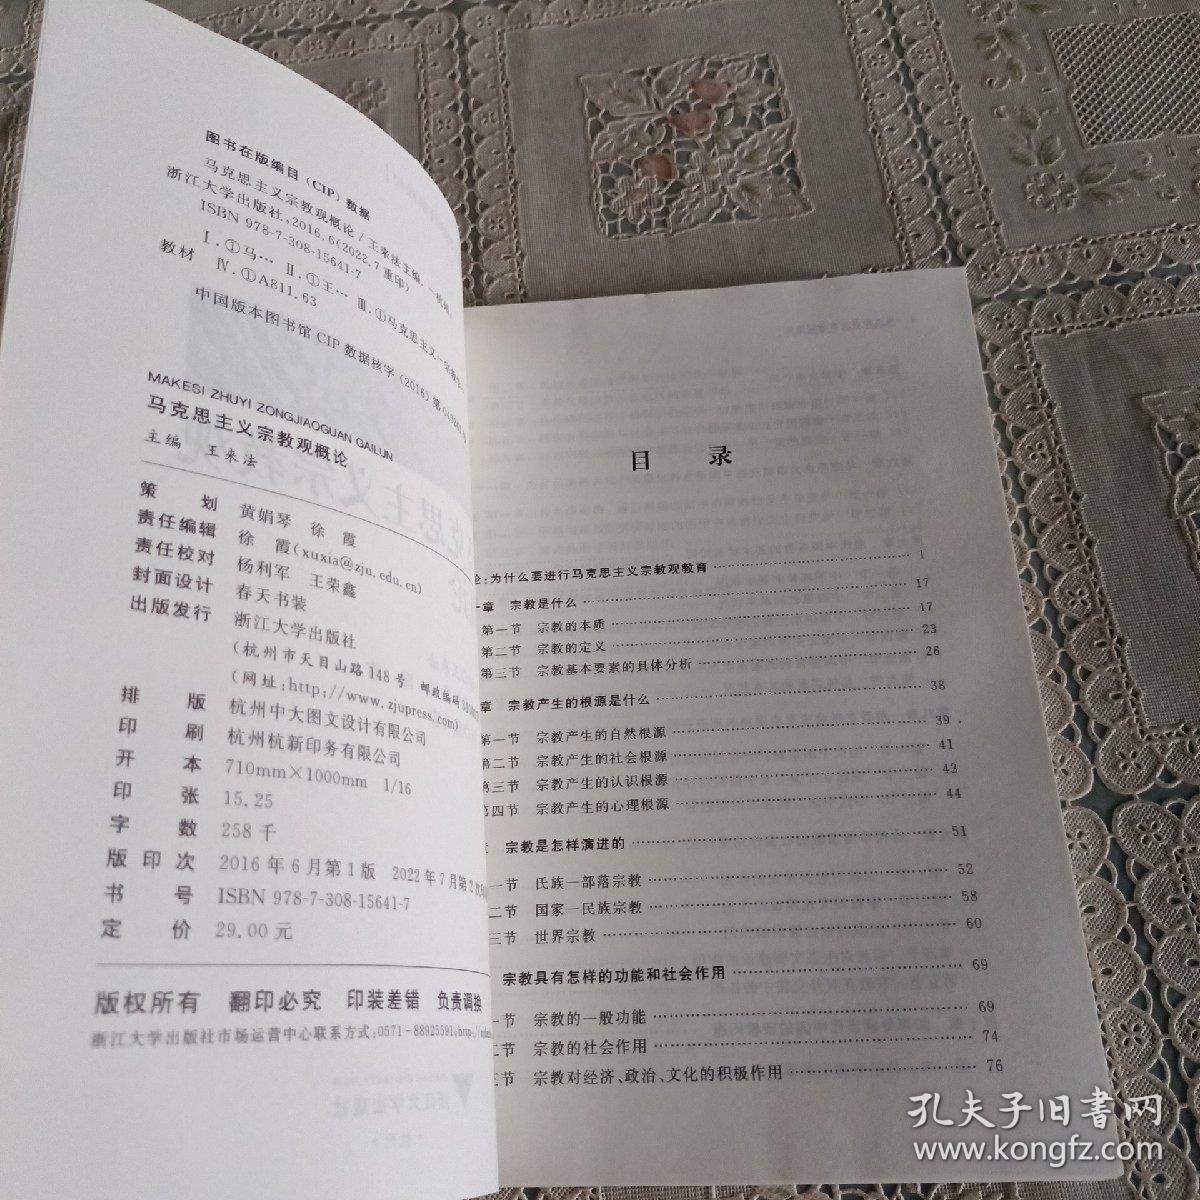 图书在版编目(CIP)数据
马克思主义宗教观概论/王来法主编.—杭州:
浙江大学出版社,2016.6(2022.7重印)
ISBN 978-7-308-15641-7
Ⅰ.①马… Ⅱ.①王… Ⅲ.①马克思主义—宗教学
教材 Ⅳ.①A811.63
中国版本图书馆CIP数据核字(2016)第
MAKESI ZHUYI ZONGJIAOGUAN GAILUN
马克思主义宗教观概论
主编 王来法
策 划 黄娟琴 徐 霞
责任编辑 徐 霞(xuxia@zju.edu.cn)
责任校对 杨利军 王荣鑫
封面设计 春天书装
出版发行 浙江大学出版社
(杭州市天目山路148号 邮政编码
(网址:http://www.zjupress.com)
排 版 杭州中大图文设计有限公司
印 刷 杭州杭新印务有限公司
开 本 710mm×1000mm 1/16
印 张 15.25
字 数 258千
版印次 2016年6月第1版 2022年7月第2次
书 号 ISBN 978-7-308-15641-7
定 价 29.00元
版权所有 翻印必究 印装差错 负责调换
浙江大学出版社市场运营中心联系方式:0571-88925591;http://
目 录
论:为什么要进行马克思主义宗教观教育 1
章 宗教是什么 17
第一节 宗教的本质 17
第二节 宗教的定义 23
第三节 宗教基本要素的具体分析 26
章 宗教产生的根源是什么 38
第一节 宗教产生的自然根源 39
第二节 宗教产生的社会根源 41
第三节 宗教产生的认识根源 43
第四节 宗教产生的心理根源 44
宗教是怎样演进的 51
一节 氏族—部落宗教 52
二节 国家—民族宗教 58
三节 世界宗教 60
宗教具有怎样的功能和社会作用 69
一节 宗教的一般功能 69
二节 宗教的社会作用 74
三节 宗教对经济、政治、文化的积极作用 76
孔夫子旧书网
www.kongfz.com